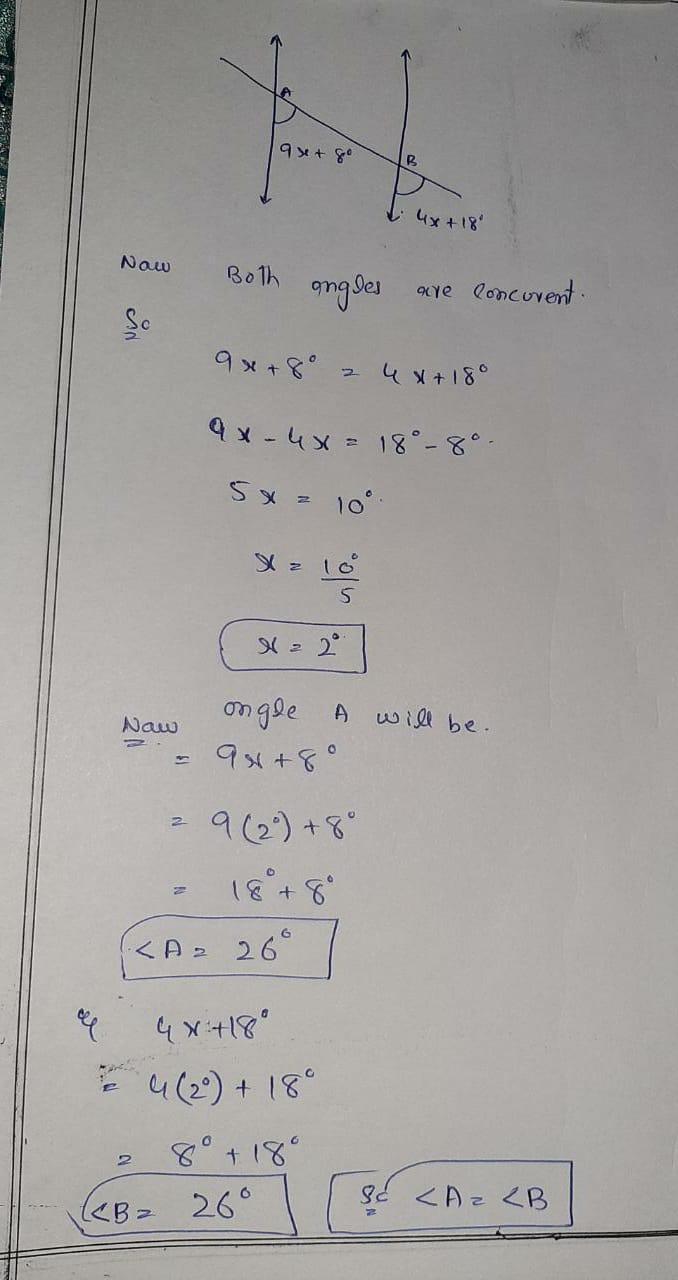 A
9x + 8°
B
4x + 18°
Now Both angles are concurent.
So
9x + 8° = 4x + 18°
9x - 4x = 18° - 8°.
5x = 10°.
x = 10°/5
x = 2°
Now angle A will be.
= 9x + 8°
= 9(2°) + 8°
= 18° + 8°
<A = 26°
& 4x + 18°
= 4(2°) + 18°
= 8° + 18°
<B = 26° So <A = <B